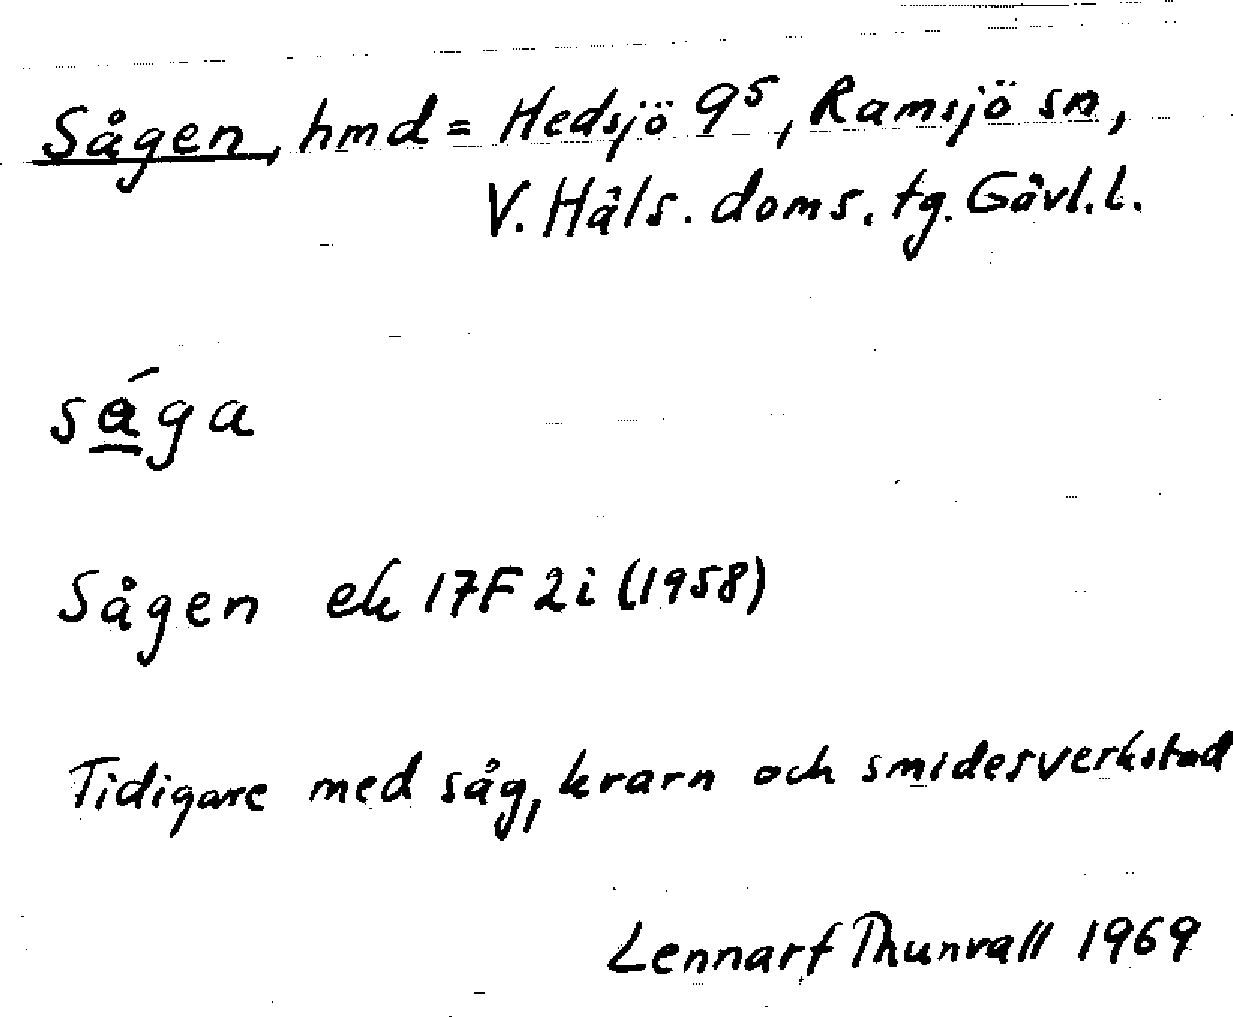 Sågen, hmd = Hedsjö 9⁵, Ramsjö sn,
V. Häls. doms. tg. Gävl. l.
sǻ̲ga
Sågen ek 17F 2i (1958)
Tidigare med såg, kvarn och smidesverkstad
Lennart Thunvall 1969